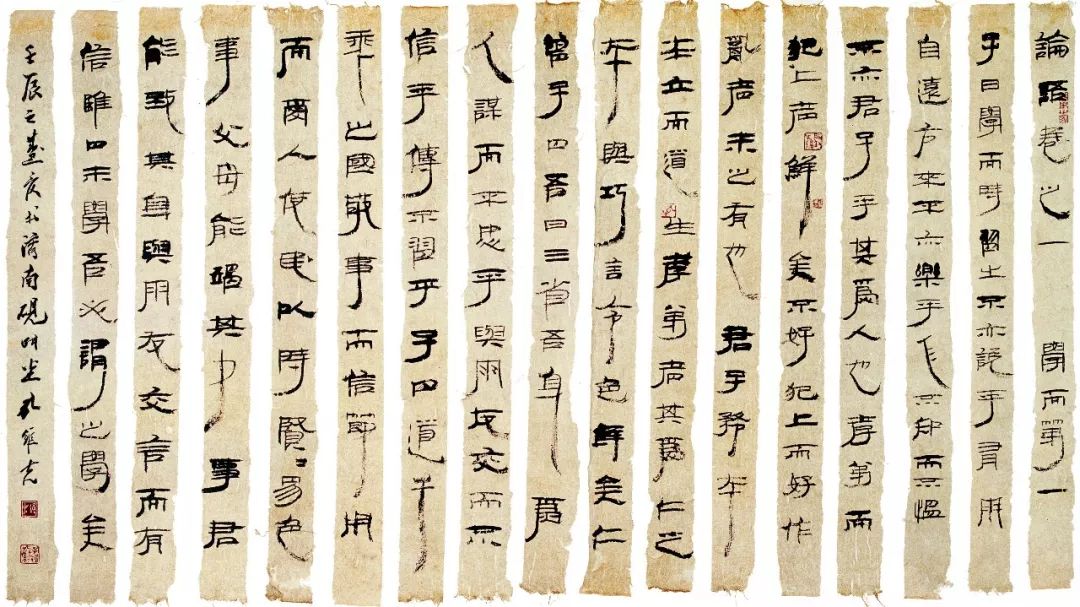 論語卷之一 學而第一
子曰學而時習之不亦說乎有朋
自遠方來不亦樂乎人不知而不慍
不亦君子乎其爲人也孝弟而
犯上者鮮矣不好犯上而好作
亂者未之有也 君子務本
本立而道生孝弟者其爲仁之
本與巧言令色鮮矣仁
曾子曰吾日三省吾身 爲
人謀而不忠乎與朋友交而不
信乎傳不習乎子曰道千
乘之國敬事而信節用
而愛人使民以時賢〻易色
事父母能竭其力 事君
能致其身與朋友交言而有
信雖曰未學吾必謂之學矣
壬辰之夏於濟南硯孔維克